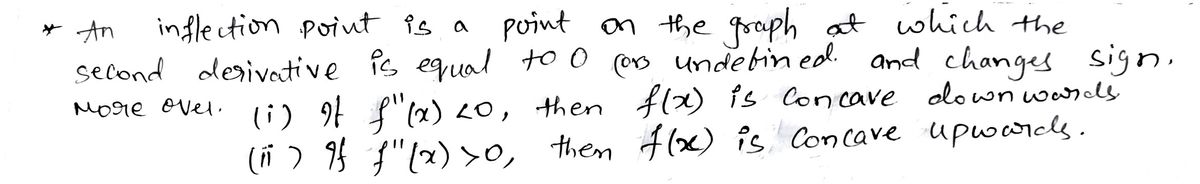 * An inflection point is a point on the graph at which the
second derivative is equal to 0 (or) undefined. and changes sign.
More over. (i) If f"(x) <0, then f(x) is concave downwards
(ii) If f"(x) >0, then f(x) is concave upwards.